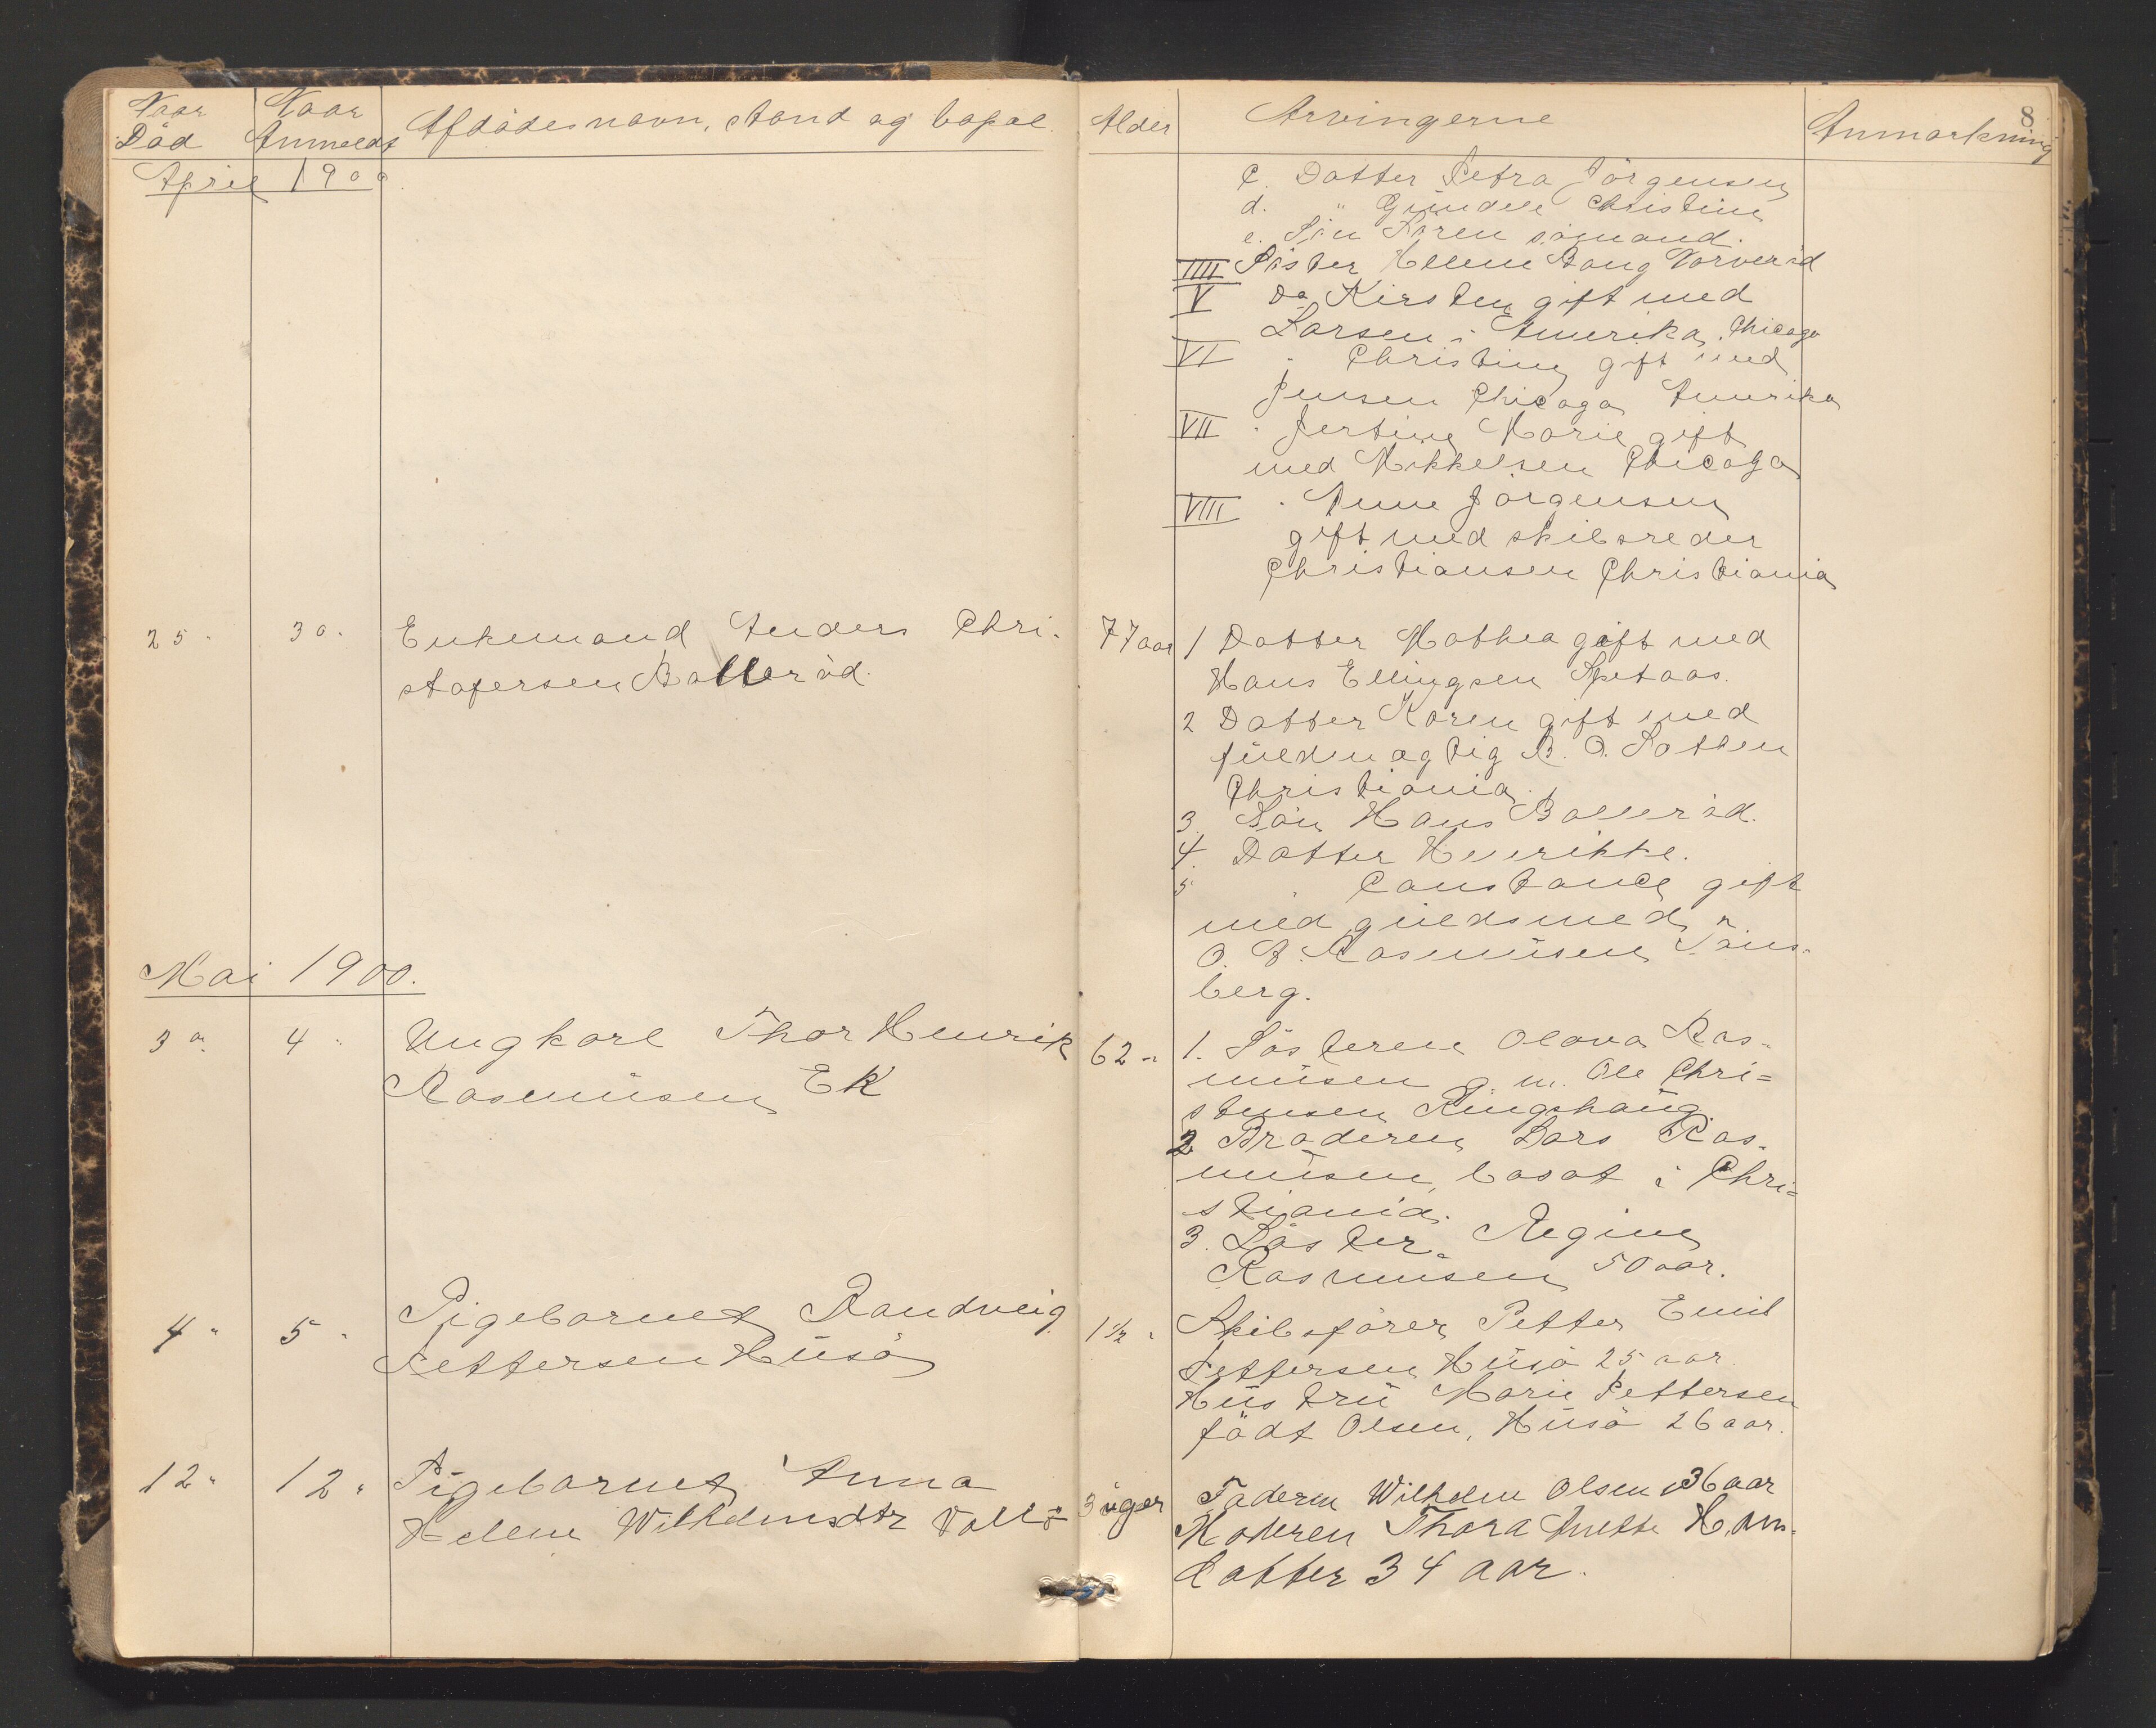 8
Naar Död
Naar Anmeldt
Afdödes navn, stand og bopæl.
Alder
Arvingerne
Anmærkning
April 1900.
c. Datter Petra Jörgensen
d. " Gunda Christine
e. Sön Sören sömand.
IIII Söster Ellene Bong Vorveröd
V Do Kirsten gift med
Larsen i Amerika, Chicago
VI " Christine gift med
Jensen Chicago Amerika
VII " Jertine Marie gift
med Mikkelsen Chicago
VIII " Anne Jörgensen
gift med skibsreder
Christiansen Christiania
25 " 30 " Enkemand Anders Chri-
stofersen Balleröd.
77 aar
1 Datter Mathea gift med
Hans Ellingsen Spetaas.
2 Datter Karen gift med
fuldmægtig B. O.
Christiania.
3. Sön Hans Balleröd.
4. Datter Henrikke.
5 " Constance gift
med guldsmed
O. A. Rasmusen Töns-
berg.
Mai 1900.
3 " 4 " Ungkarl Thor Henrik
Rasmusen EK
62 "
1. Sösteren Olava Ras-
musen g. m. Ole Chri=
stensen Ringshaug.
2 Broderen Lars Ras-
musen, bosat i Chri=
stiania.
3. Söster. Regine
Rasmusen 50 aar.
4 " 5 " Pigebarnet Randveig
Pettersen Husö
1 1/2 "
Skibsförer Petter Emil
Pettersen Husö 25 aar
Hustru Marie Pettersen
födt Olsen, Husö 26 aar.
12 " 12 " Pigebarnet Anna
Helene Wilhelmsdtr Vallö
3 uger
Faderen Wilhelm Olsen 36 aar
Moderen Thora Anette Hans-
datter 34 aar.